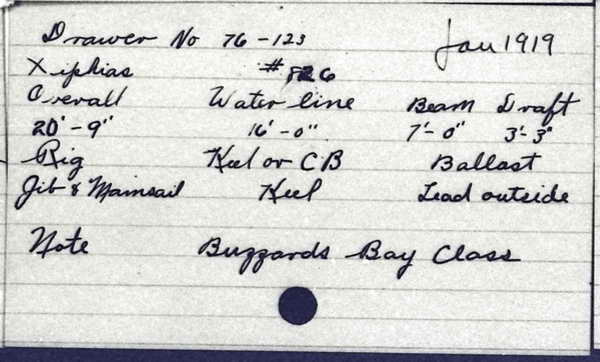 Drawer No 76-123 Jan 1919
Xiphias #826
Overall Water line Beam Draft
20'-9" 16'-0" 7'-0" 3'-3"
Rig Keel or CB Ballast
Jib & Mainsail Keel Lead outside
Note Buzzards Bay Class